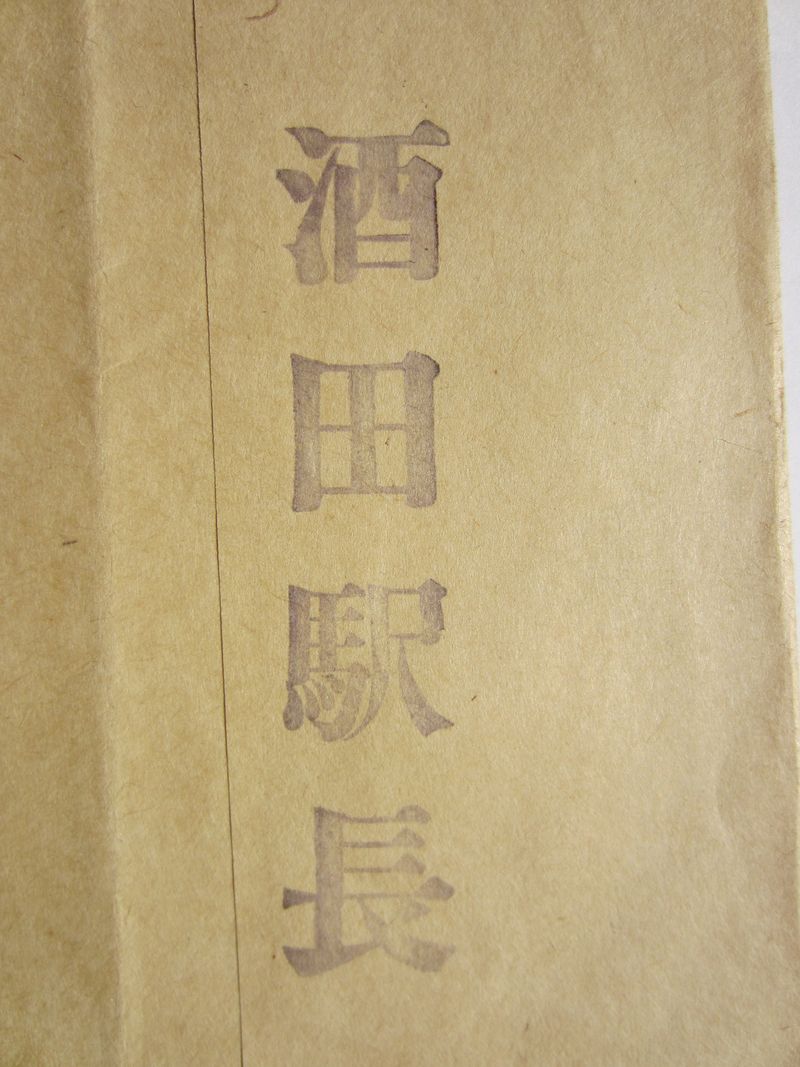 酒田駅長